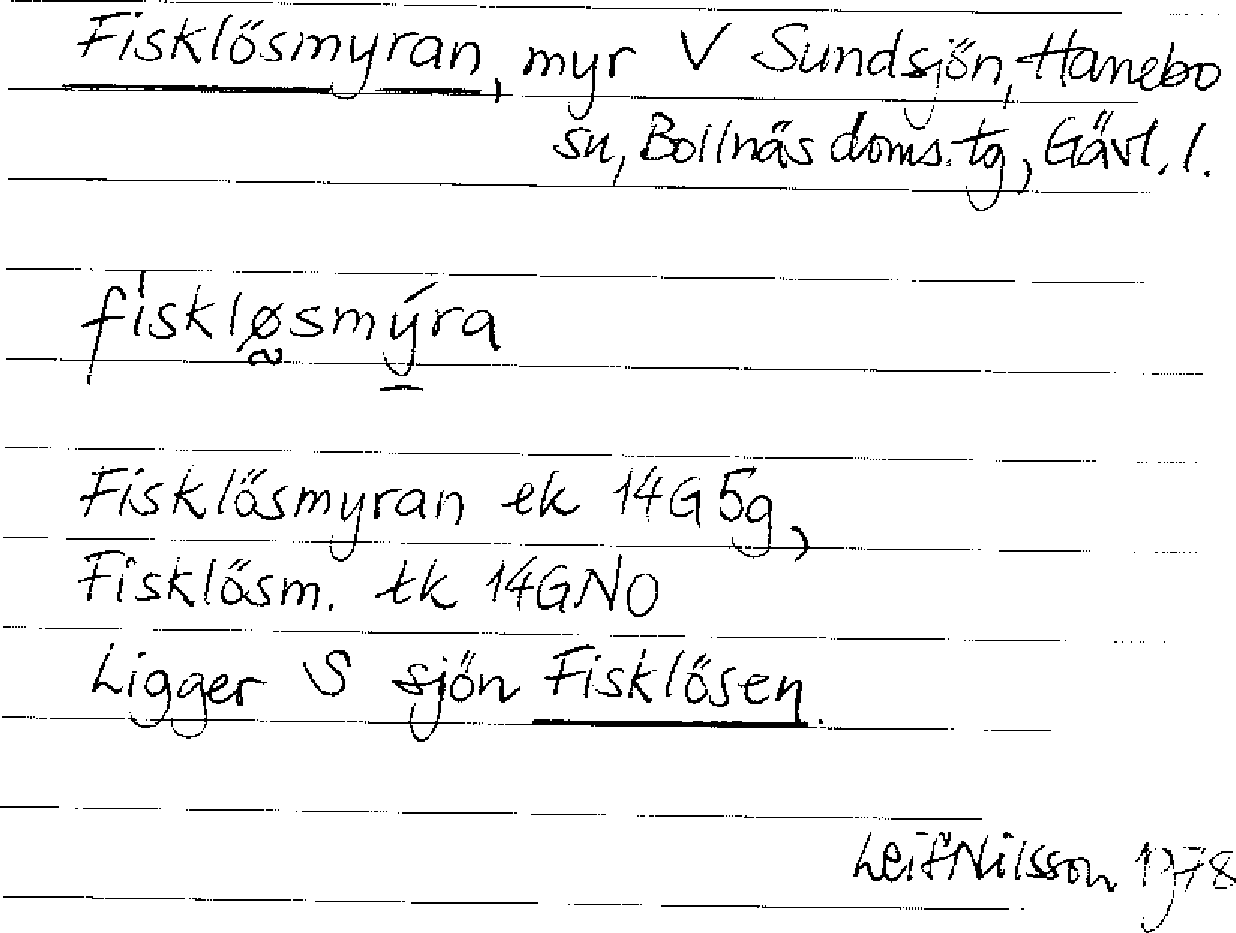 Fisklösmyran, myr V Sundsjön, Hanebo
sn, Bollnäs doms.tg, Gävl. l.
fisklø̰smý̱ra
Fisklösmyran ek 14G5g,
Fisklösm. tk 14GNO
Ligger S sjön Fisklösen.
Leif Nilsson 1978